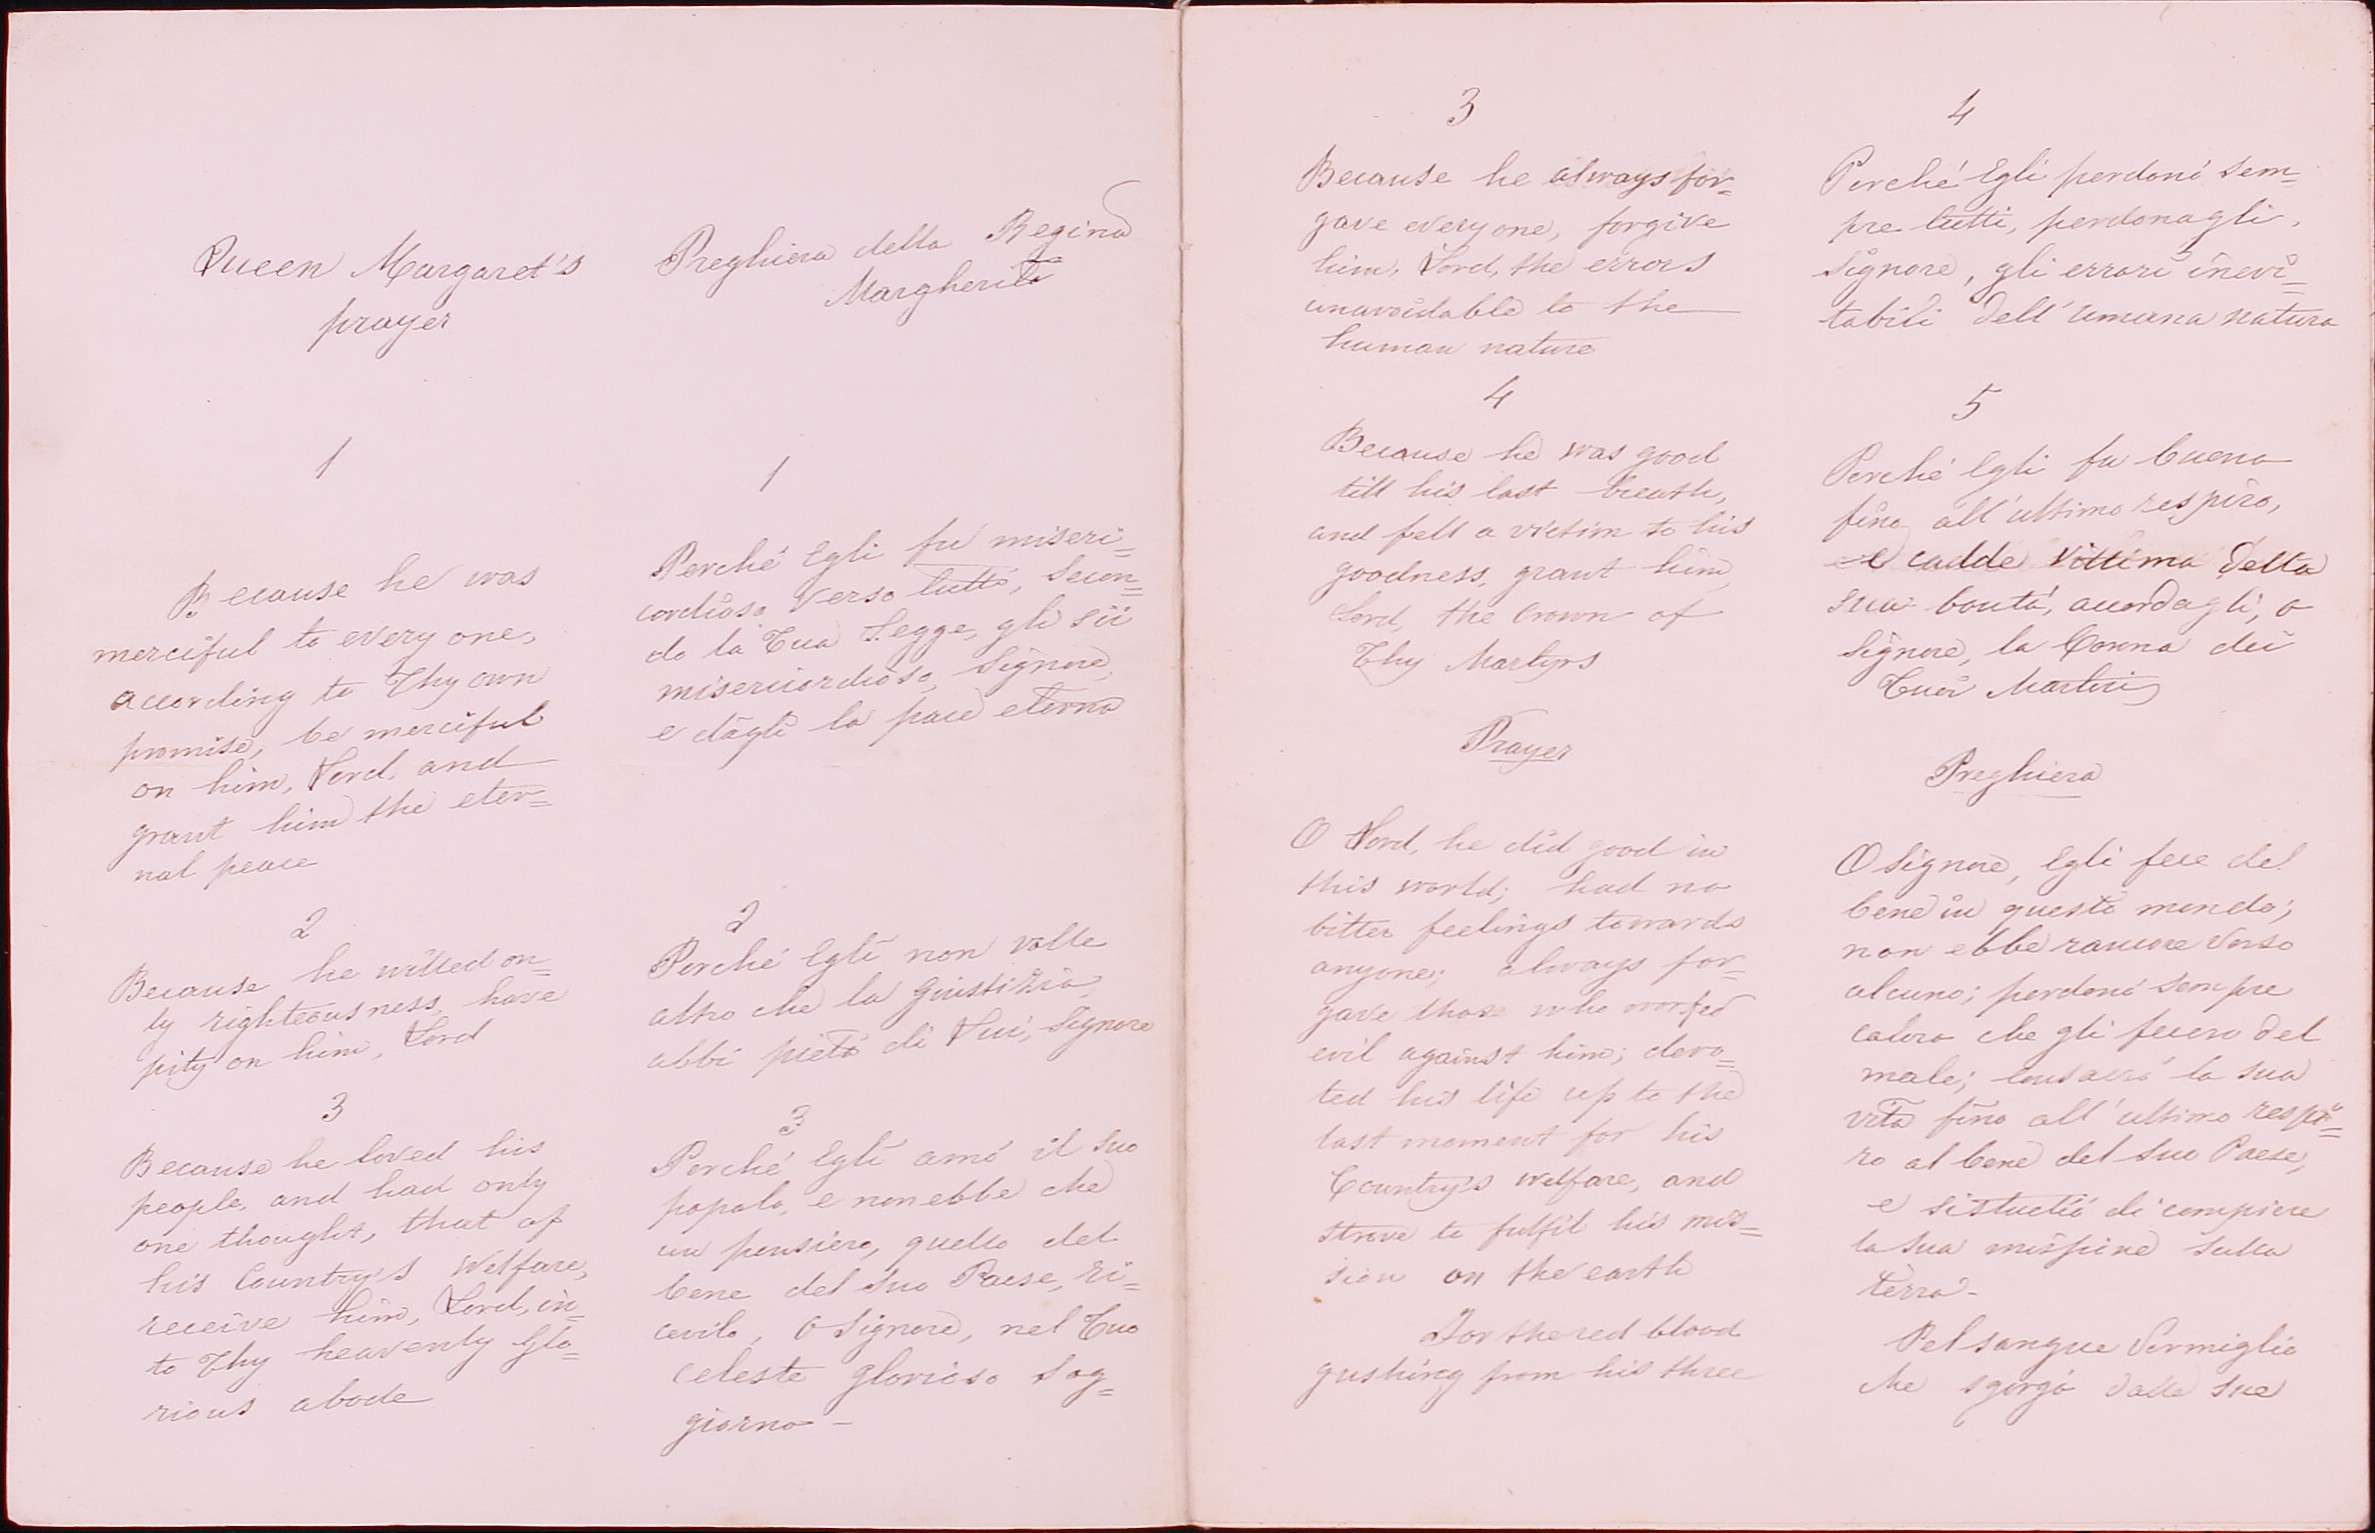 Queen Margaret's
prayer
1
Because he was
merciful to every one,
according to Thy own
promise, be merciful
on him, Lord, and
grant him the eter=
nal peace
2
Because he willed on=
ly righteousness, have
pity on him, Lord
3
Because he loved his
people, and had only
one thought, that of
his Country's Welfare,
receive him, Lord, in=
to Thy heavenly Glo=
rious abode
Preghiera della Regina
Margherita
1
Perché Egli fu miseri=
cordioso verso tutti, secon=
do la Tua Legge, gli sii
misericordioso, Signore,
e dagli la pace eterna
2
Perché Egli non volle
altro che la Giustizia,
abbi pietà di Lui, Signore
3
Perché Egli amò il suo
popolo, e non ebbe che
un pensiero, quello del
bene del suo Paese, ri=
cevilo, O Signore, nel Tuo
celeste glorioso sog=
giorno -
3
Because he always for=
gave everyone, forgive
him, Lord, the errors
unavoidable to the
human nature
4
Because he was good
till his last breath,
and fell a victim to his
goodness, grant him,
Lord, the Crown of
Thy Martyrs
Prayer
O Lord, he did good in
this world; had no
bitter feelings towards
anyone; always for=
gave those who worked
evil against him; devo=
ted his life up to the
last moment for his
Country's welfare, and
strove to fulfil his mis=
sion on the earth
For the red blood
gushing from his three
4
Perché Egli perdonò sem=
pre tutti, perdonagli,
Signore, gli errori inevi=
tabili dell'umana natura
5
Perché Egli fu buono
fino all'ultimo respiro,
e cadde vittima della
sua bontà, accordagli, o
Signore, la Corona dei
Tuoi Martiri
Preghiera
O Signore, Egli fece del
bene in questo mondo;
non ebbe rancore verso
alcuno; perdonò sempre
coloro che gli fecero del
male; consacrò la sua
vita fino all'ultimo respi=
ro al bene del suo Paese,
e si studiò di compiere
la sua missione sulla
terra -
Pel sangue vermiglio
che sgorgò dalle sue